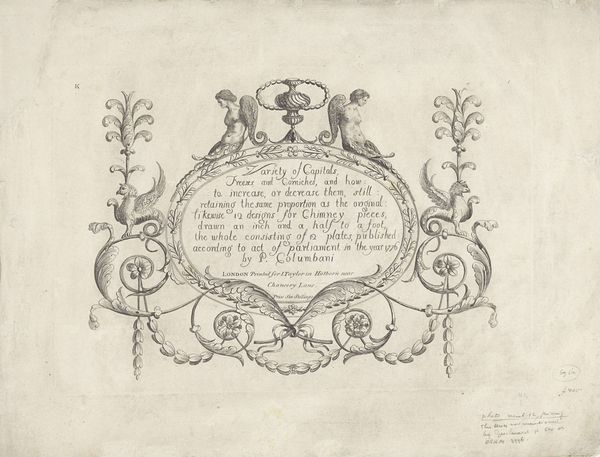 K
Variety of Capitals,
Freezes and Corniches, and how
to increase, or decrease them, still
retaining the same proportion as the original:
likewise 12 designs for Chimney pieces,
drawn an inch and a half to a foot,
the whole consisting of 12 plates, published
according to act of parliament in the year 1776
by P. Columbani
LONDON Printed for I Taylor in Holborn near
Chancery Lane
Price Six Shillings